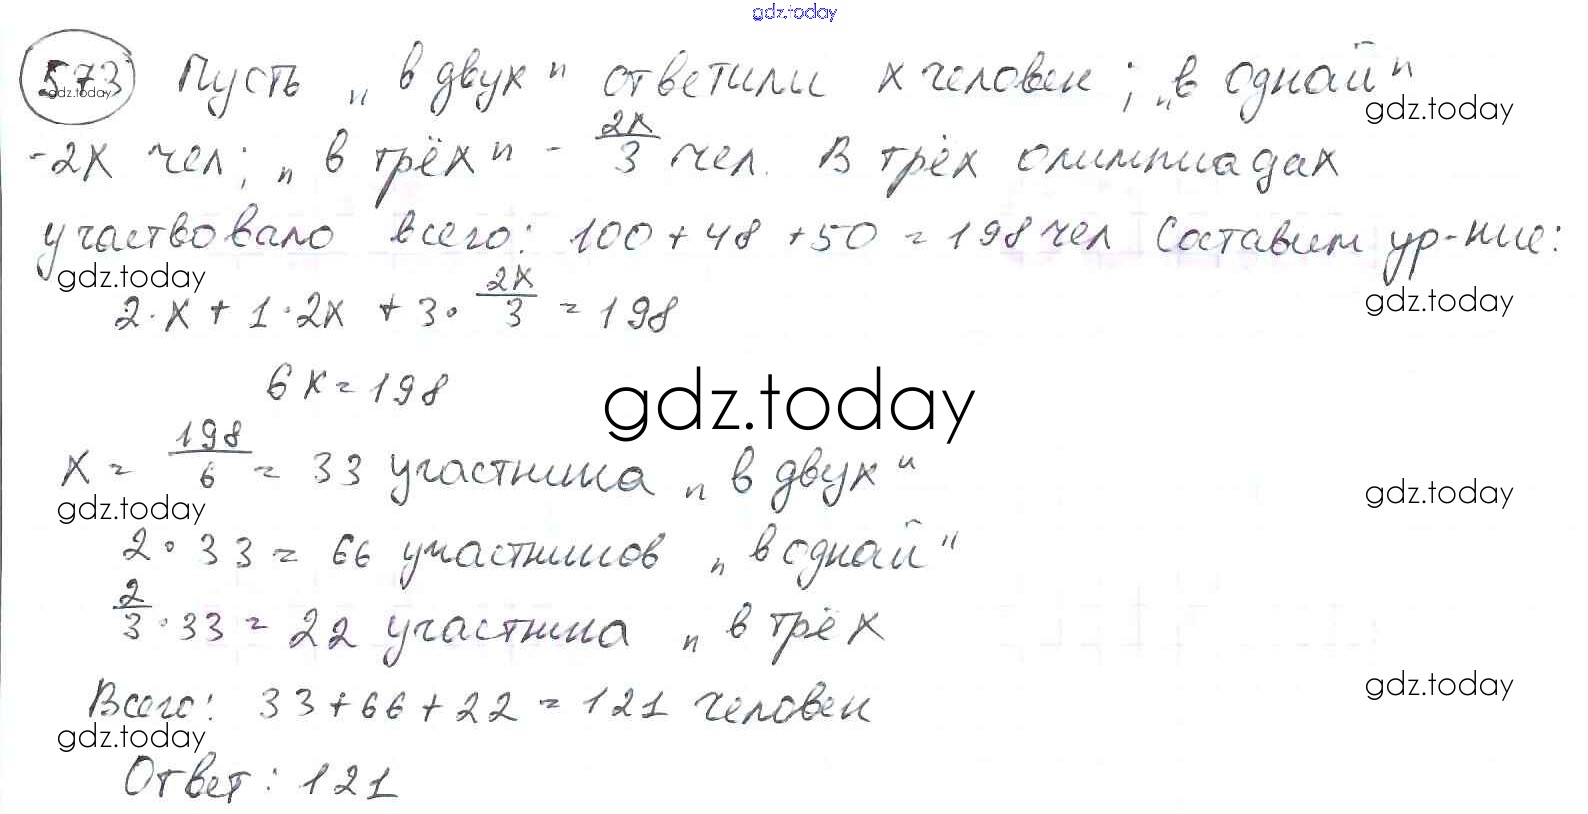 gdz.today
573 Пусть „в двух" ответили x человек; „в одной"
gdz.today
gdz.today
-2x чел; „в трёх" - 2x/3 чел. В трёх олимпиадах
участвовало всего: 100+48+50=198 чел Составим ур-ние:
gdz.today
gdz.today
2·x+1·2x+3·2x/3=198
6x=198
gdz.today
x=198/6=33 участника „в двух"
gdz.today
gdz.today
2·33=66 участников „в одной"
2/3·33=22 участника „в трёх
gdz.today
Всего: 33+66+22=121 человек
gdz.today
Ответ: 121